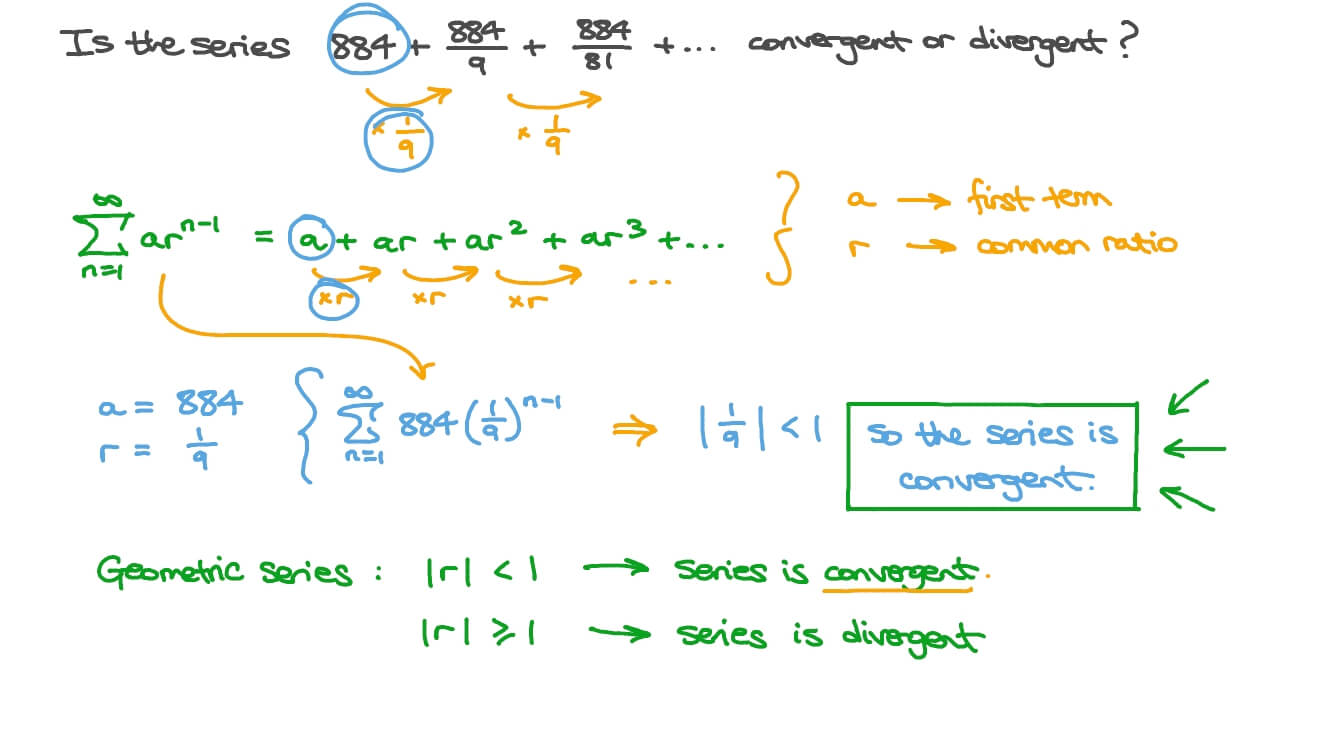 Is the series 884 + 884/9 + 884/81 + ... convergent or divergent?
× 1/9 × 1/9
∑_{n=1}^{∞} ar^{n-1} = a + ar + ar^2 + ar^3 + ...
×r ×r ×r ...
a → first term
r → common ratio
a = 884
r = 1/9
∑_{n=1}^{∞} 884(1/9)^{n-1} ⇒ |1/9| < 1
So the series is
convergent.
Geometric series : |r| < 1 → series is convergent.
|r| ≥ 1 → series is divergent